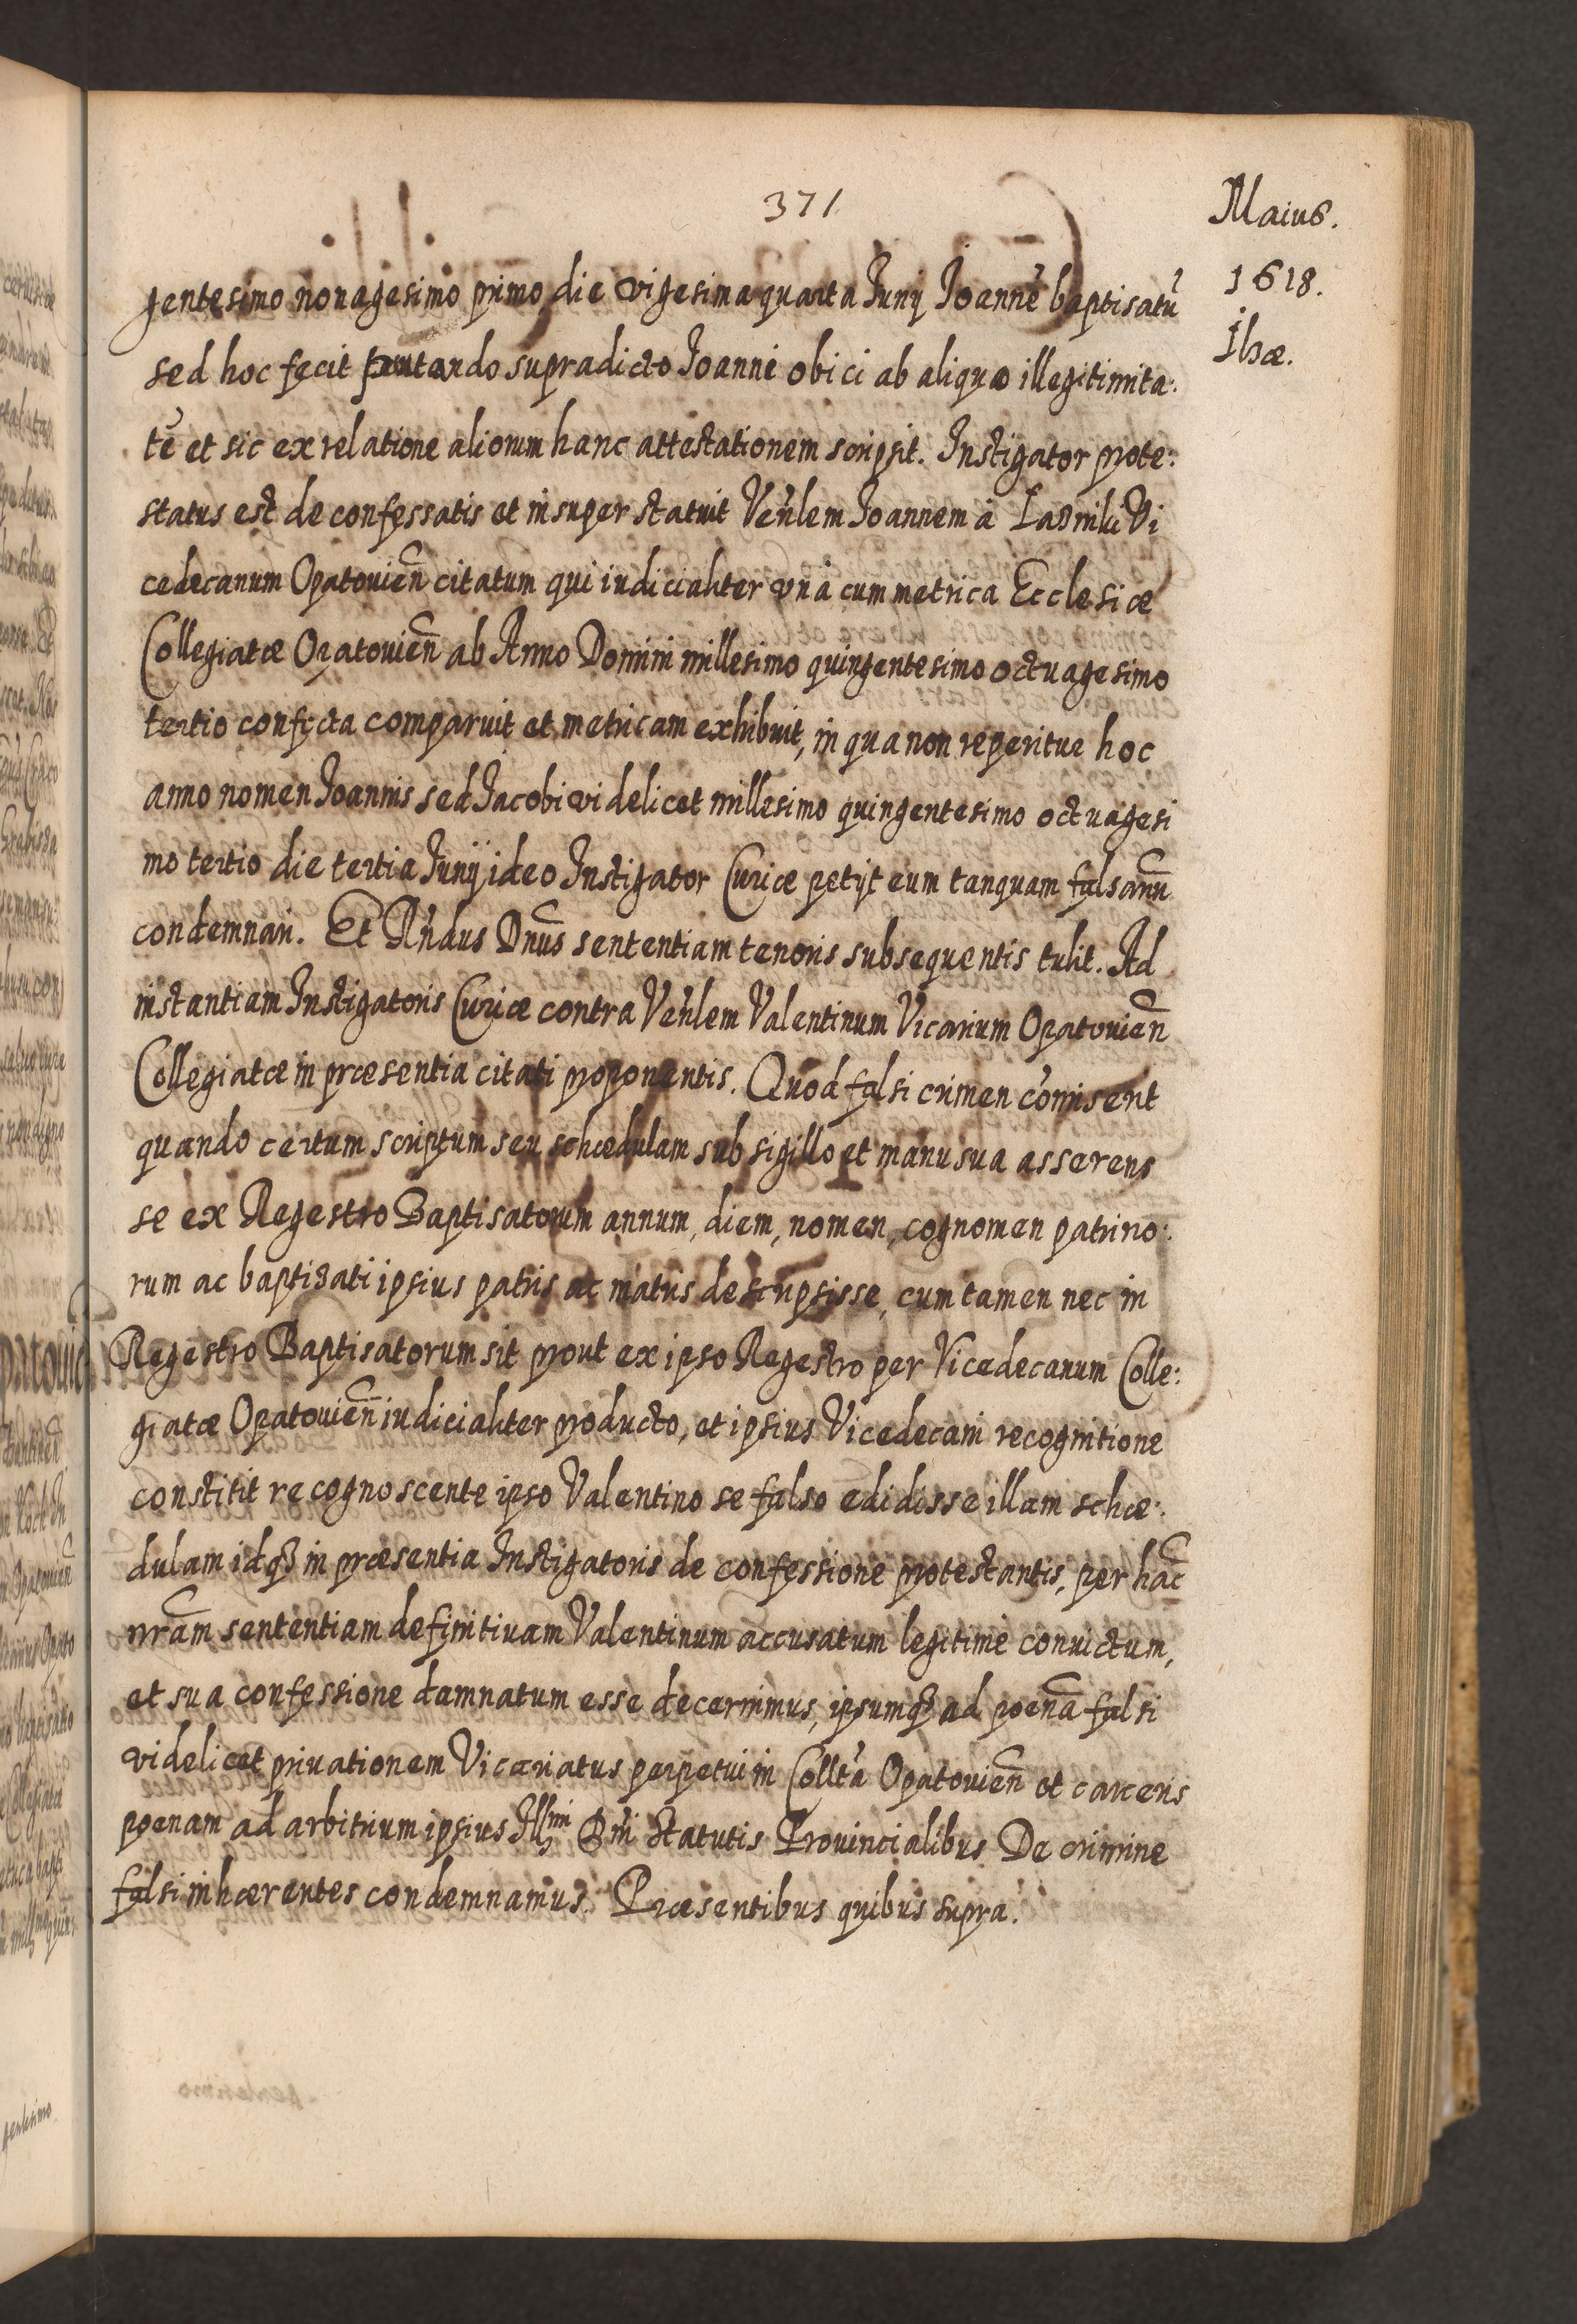 371
Maius.
1618.
Ilzæ.
gentesimo nonagesimo primo die vigesima quarta Iunij Ioannē baptisatū
sed hoc fecit putando supradicto Ioanni obici ab aliquo illegitimita:
tē et sic ex relatione aliorum hanc attestationem scripsit. Instigator prote:
status est de confessatis et insuper statuit Venlem Ioannem à Vi
cedecanum Opatouien̄ citatum qui iudicialiter vnà cum metrica Ecclesiæ
Collegiatæ Opatouien̄ ab Anno Domini millesimo quingentesimo octuagesimo
tertio confecta comparuit et metricam exhibuit, in qua non reperitur hoc
anno nomen Ioannis sed Iacobi videlicet millesimo quingentesimo octuagesi
mo tertio die tertia Iunij ideo Instigator Curiæ petijt eum tanquam falsariū
condemnari. Et Rndus Dnus sententiam tenoris subsequentis tulit. Ad
instantiam Instigatoris Curiæ contra Venlem Valentinum Vicarium Opatouien̄
Collegiatæ in præsentia citati proponentis. Quod falsi crimen cōmiserit
quando certum scriptum seu schædulam sub sigillo et manu sua asserens
se ex Regestro Baptisatorum annum, diem, nomen, cognomen patrino:
rum ac baptisati ipsius patris ac matris descripsisse, cum tamen nec in
Regestro Baptisatorum sit prout ex ipso Regestro per Vicedecanum Colle:
giatæ Opatouien̄ iudicialiter producto, et ipsius Vicedecani recognitione
constitit recognoscente ipso Valentino se falso edidisse illam schæ:
dulam idq3 in præsentia Instigatoris de confessione protestantis, per hāc
nram̄ sententiam definitiuam Valentinum accusatum legitimè conuictum,
et sua confessione damnatum esse decernimus, ipsumq3 ad poenā falsi
videlicet priuationem Vicariatus perpetui in Collta Opatouien̄ et carceris
poenam ad arbitrium ipsius Illmi Dni Statutis Prouincialibus De crimine
falsi inhærentes condemnamus. Præsentibus quibus supra.